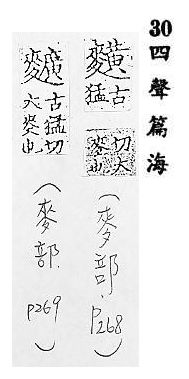 30四聲篇海
古猛
切大麥也
(麥部.P268)
䵃古猛切大麥也
(麥部.P269)